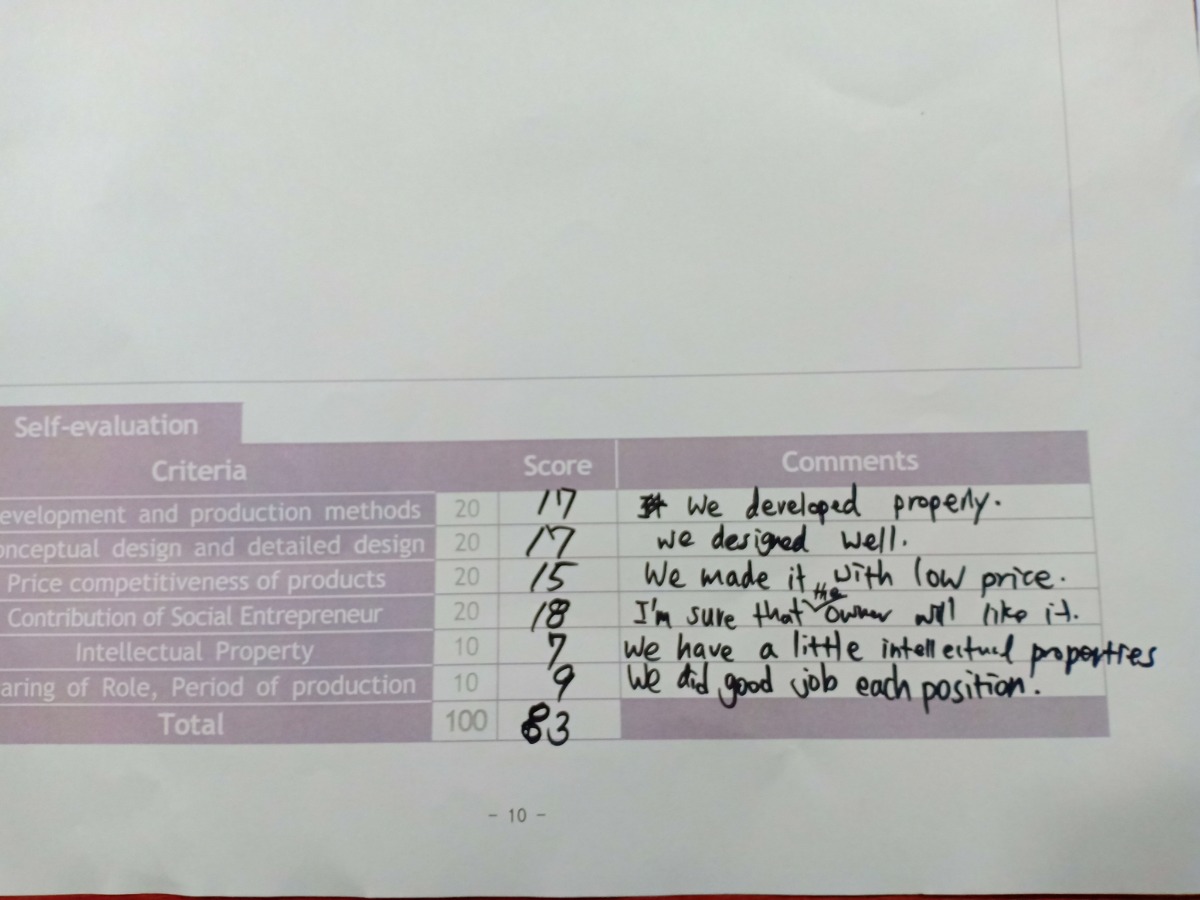 Self-evaluation
Criteria Score Comments
evelopment and production methods 20 17 We developed properly.
onceptual design and detailed design 20 17 we designed well.
Price competitiveness of products 20 15 We made it with low price.
Contribution of Social Entrepreneur 20 18 I'm sure that the owner will like it.
Intellectual Property 10 7 We have a little intellectual properties
aring of Role, Period of production 10 9 We did good job each position.
Total 100 83
- 10 -